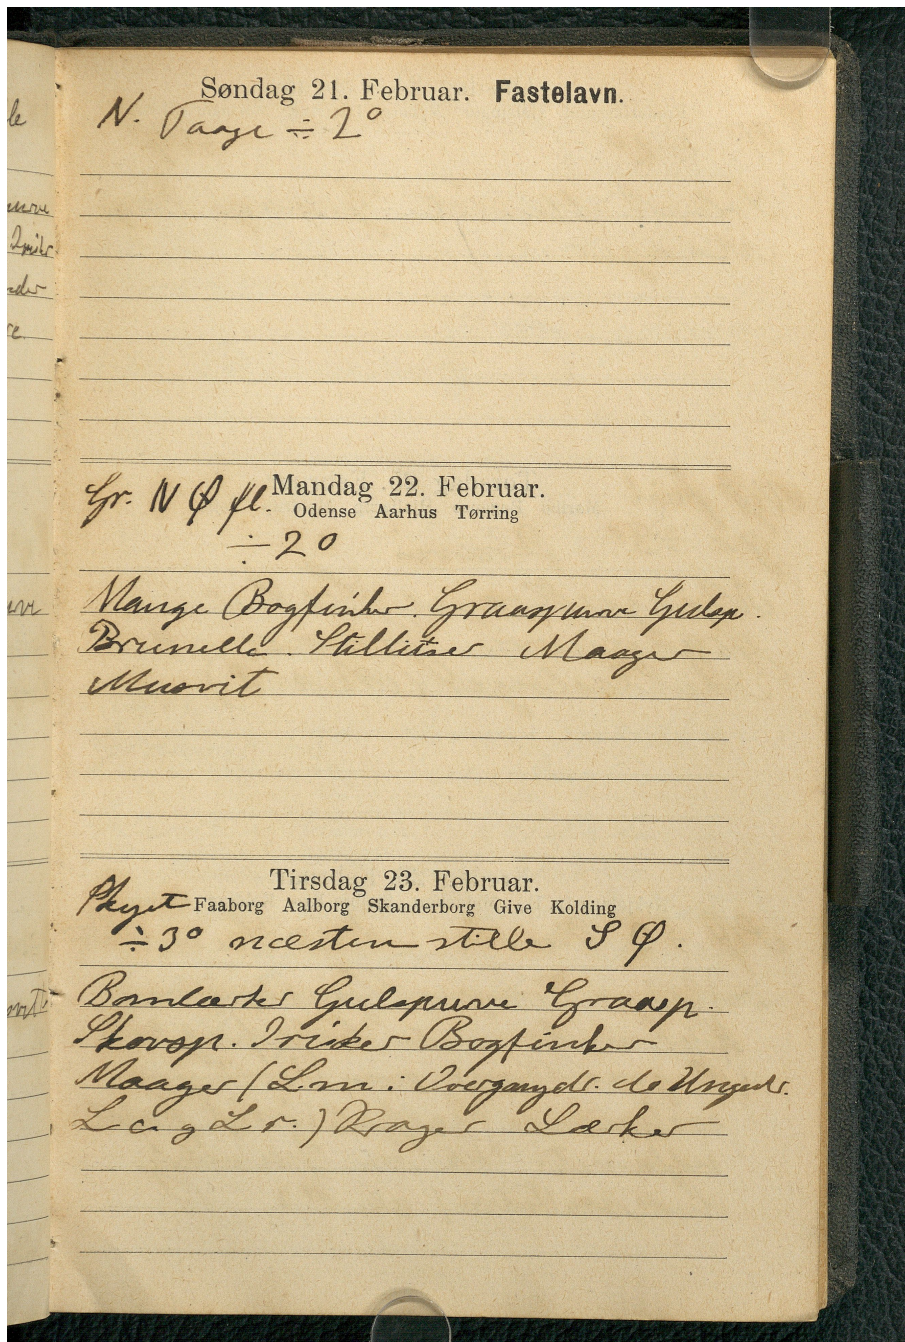 Søndag 21. Februar. Fastelavn.
N. Taage ÷ 2°
Mandag 22. Februar.
Gr. N Ø fl.
Odense Aarhus Tørring
÷ 2°
Mange Bogfinker. Graaspurve Gulsp.
Brunelle. Stillitser Maager
Musvit
Tirsdag 23. Februar.
Skyet
Faaborg Aalborg Skanderborg Give Kolding
÷ 3° næsten stille S Ø.
Bomlærker Gulspurve Graasp.
Skovsp. Irisker Bogfinker
Maager (L. m. i Overgangdr. do Ungedr.
L c. g L r.) Krager Lærker